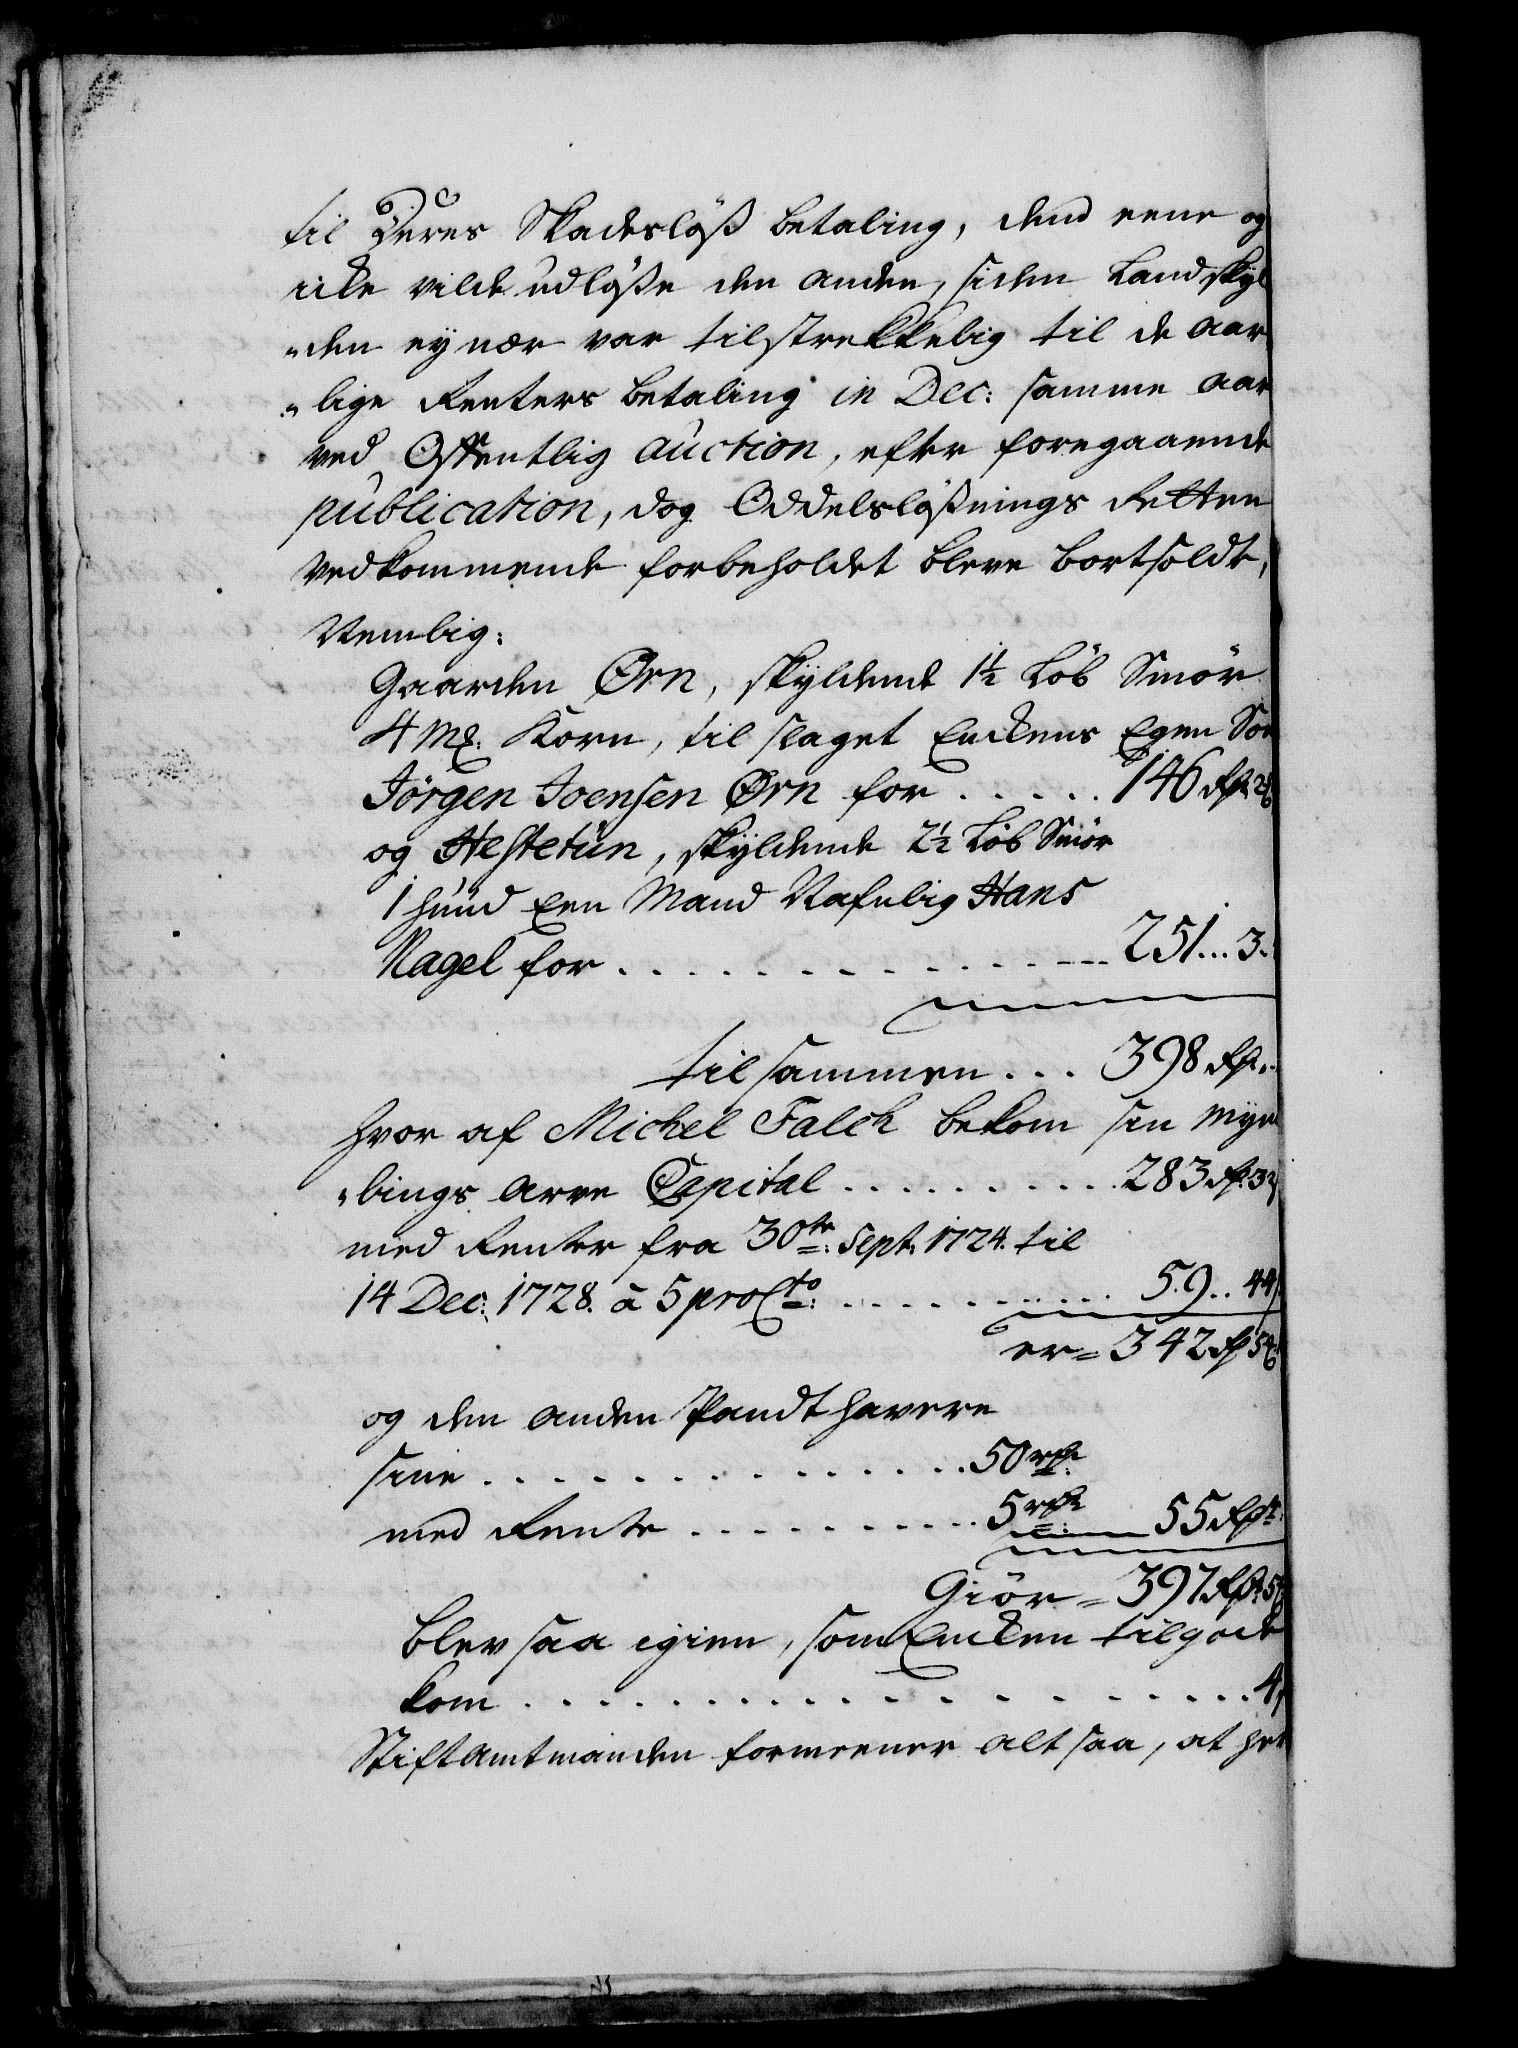 til Deres Skadesløß betaling, dend eene og
icke vilde udløße den anden, siden Landskyl
"den ey nær var tilstrekkelig til de aar
"lige Renters betaling in Dec: samme aar
ved Offentlig auction, efter foregaaende
publication, dog Oddelsløßnings Retten
vedkommende forbeholdet bleve bortsoldt,
Nemlig:
Gaarden Ørn, skyldende 1½ Løb Smør
4 Mel. Korn, til slaget Enckens Egen Søn
Jörgen Joensen Ørn for . . . . . 146 Rdr
og Hestetun, skyldende 2½ Løb Smør
1 hund Een Mand Nafnlig Hans
Nagel for . . . . . . . . . . . 251 ... 3.
tilsammen . . . 398 Rdr.
hvor af Michel Falck bekom sin Myn
"lings arve Capital . . . . . . . . . . 283 Rd. 3
med Renter fra 30te: Sept. 1724. til
14 Dec: 1728. à 5 pro Cto: . . . . . . . . . 59 . . 44
er = 342 Rd 5
og den anden Pandthavere
sine . . . . . . . . . . . . . . . 50 rdr:
med Rente . . . . . . . . . . 5 rdr: 55 Rdr:
Giör = 397 Rdr. 5
blev saa igien, som Encken tilgode
kom . . . . . . . . . . . . . . . . . . 4
Stiftamtmanden formeener alt saa, at het